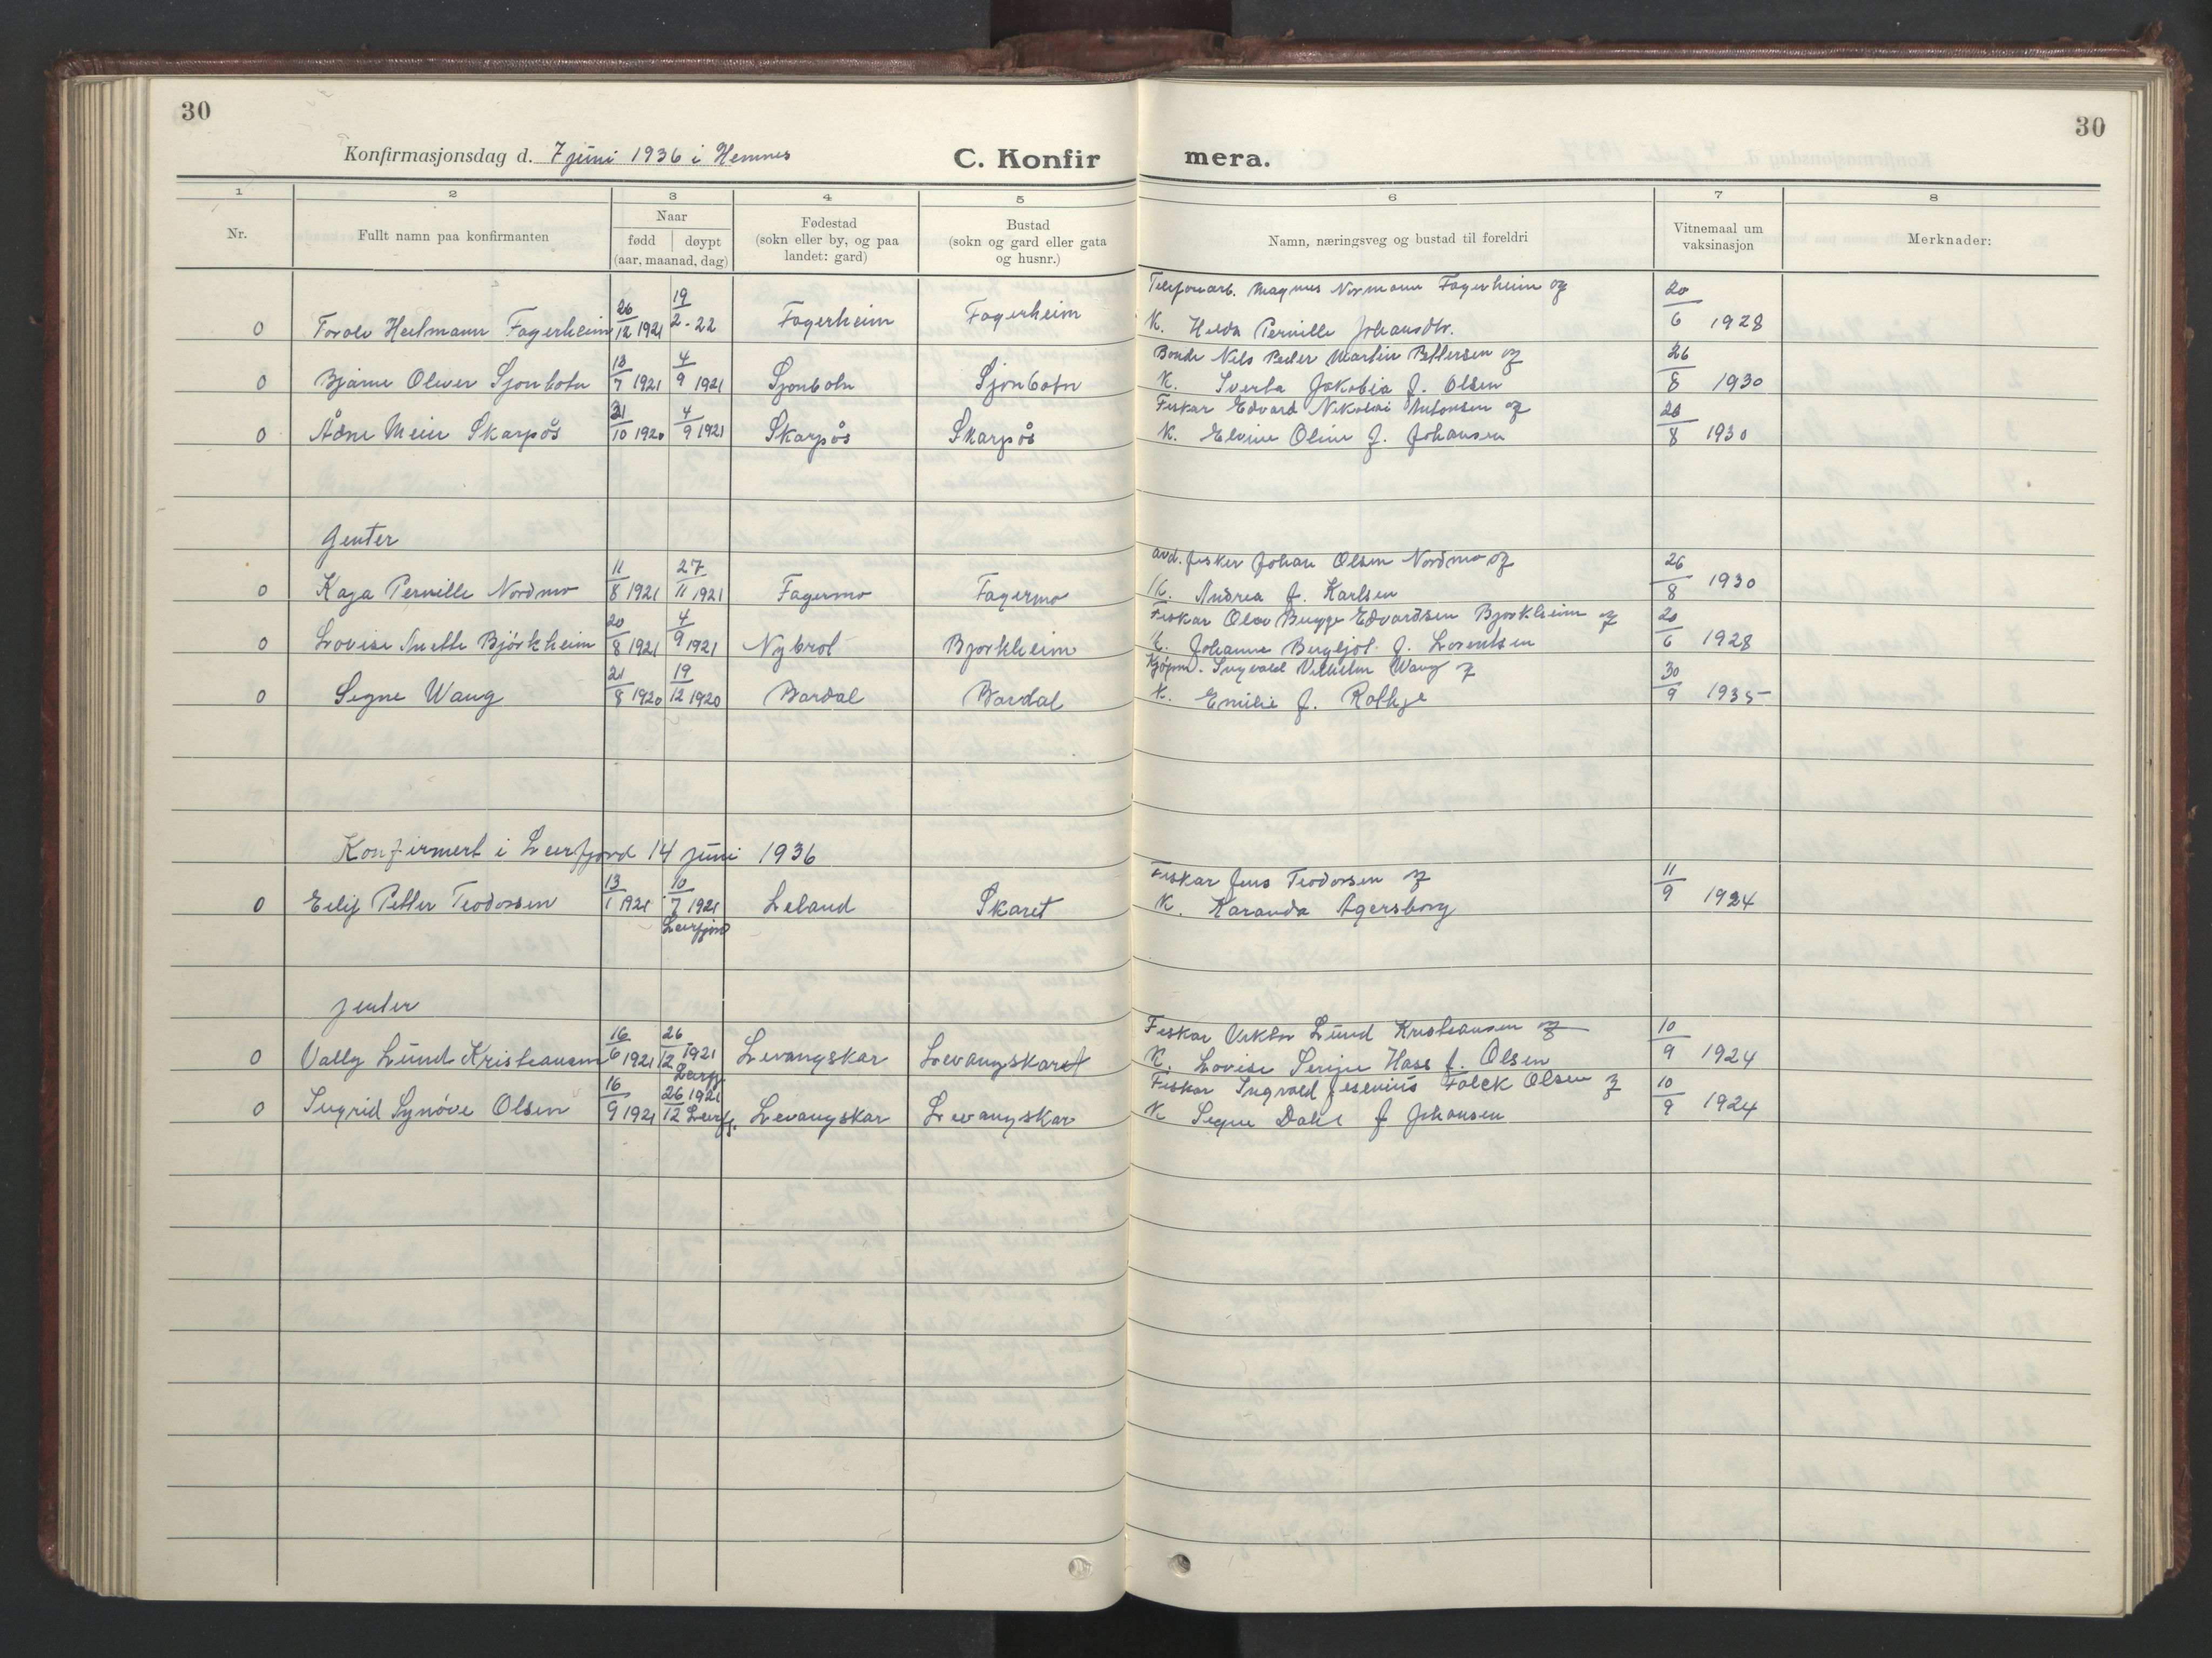 30
30
Konfirmasjonsdag d. 7 juni 1936 i Hemnes
C. Konfirmera.
1 2 3 4 5 6 7 8
Nr.
Fullt namn paa konfirmanten
Naar
fødd | døypt
(aar, maanad, dag)
Fødestad
(sokn eller by, og paa
landet: gard)
Bustad
(sokn og gard eller gata
og husnr.)
Namn, næringsveg og bustad til foreldri
Vitnemaal um
vaksinasjon
Merknader:
0 Torolv Heitmann Fagerheim 26/12 1921 19/2-22 Fagerheim Fagerheim Telefonarb. Magnus Normann Fagerheim og 20/6 1928
K. Helda Pernille Johansdtr.
0 Bjarne Oliver Sjonbotn 13/7 1921 4/9 1921 Sjonbotn Sjonbotn Bonde Nels Peder Martin Pettersen og 26/8 1930
K. Sverta Jakobia f. Olsen
0 Ådne Meier Skarpås 31/10 1920 4/9 1921 Skarpås Skarpås Fiskar Edvard Nikolai Antonsen og 26/8 1930
K. Elvine Oline f. Johansen
Genter
0 Kaja Pernille Nordmo 11/8 1921 27/11 1921 Fagermo Fagermo avd. fisker Johan Olsen Nordmo og 26/8 1930
K. Andrea f. Karlsen
0 Lovise Anette Björkheim 20/8 1921 4/9 1921 Nybrot Bjorkheim Fiskar Olav Bugge Edvardsen Bjorkheim og 20/6 1928
K. Johanne Bergljot f. Lorentsen
0 Segne Wang 21/8 1920 19/12 1920 Bardal Bardal Kjøpm. Ingvald Vilhelm Wang og 30/9 1935
K. Emilie f. Rothje
Konfirmert i Leirfjord 14 juni 1936
0 Eilif Petter Teodorsen 13/1 1921 10/7 1921 Leirfjord Leland Skaret Fiskar Jens Teodorsen og 11/9 1924
K. Karanda Agersborg
jenter
0 Vally Lund Kristeansen 16/6 1921 26/12 1921 Leirfj. Levangskar Levangskaret Fiskar Viktor Lund Kristeansen og 10/9 1924
K. Lovise Serine Hass f. Olsen
0 Ingrid Synöve Olsen 16/9 1921 26/12 1921 Leirfj. Levangskar Levangskar Fiskar Ingvald Jesenius Falck Olsen og 10/9 1924
K Segne Dahl f Johansen